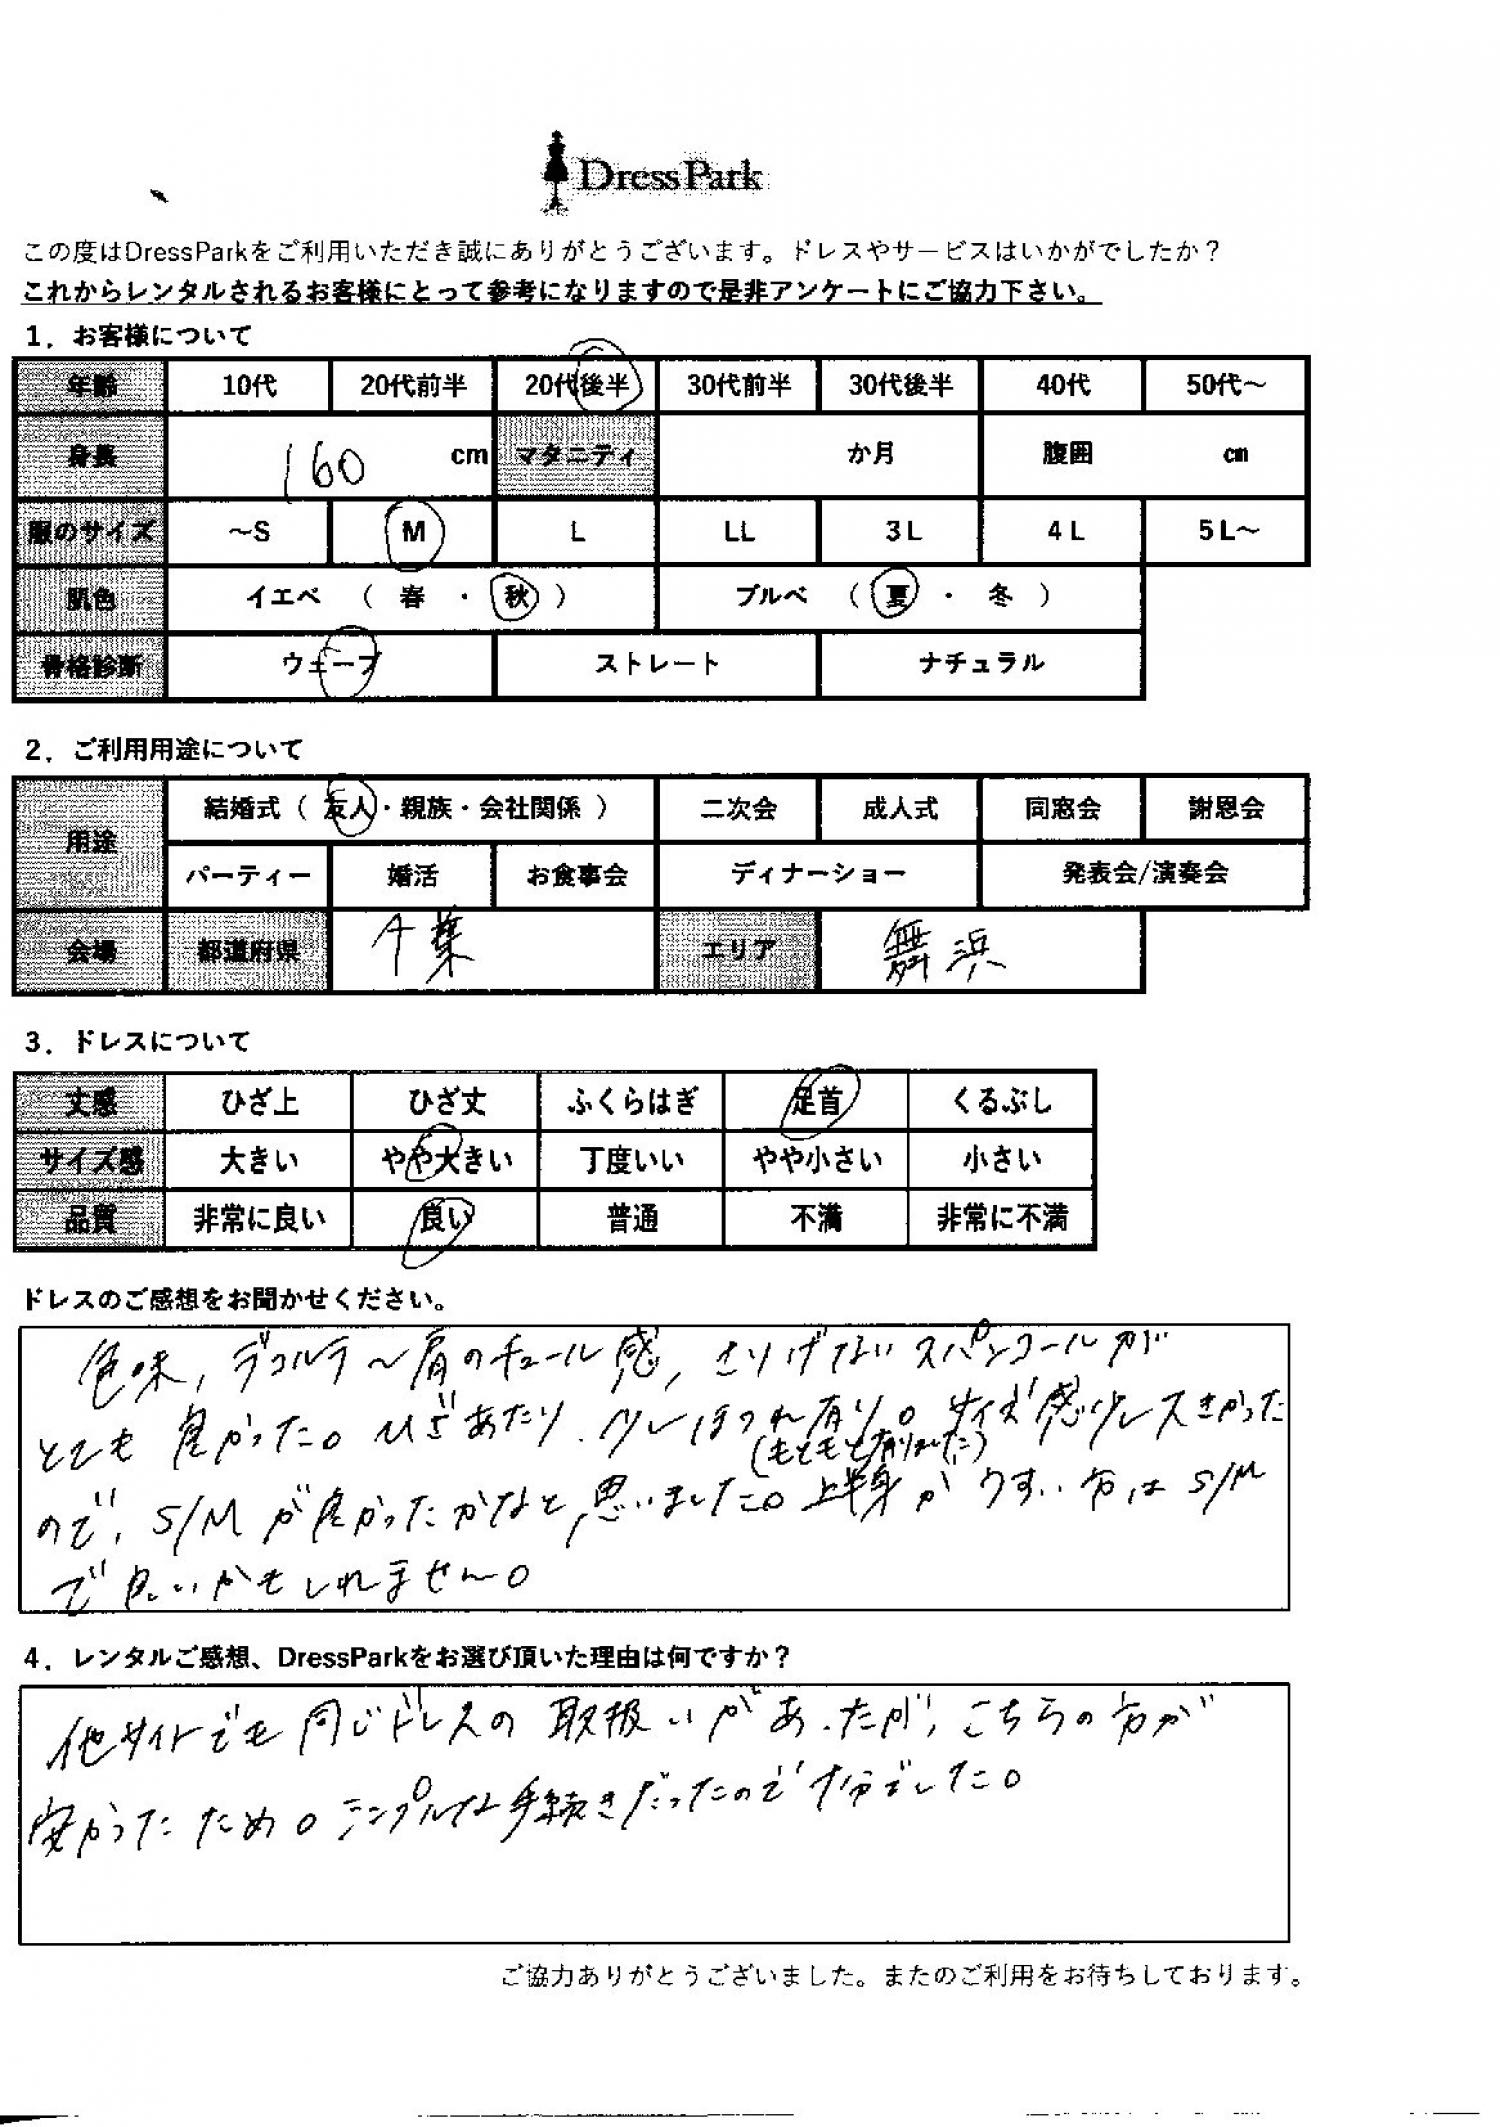 DressPark
この度はDressParkをご利用いただき誠にありがとうございます。ドレスやサービスはいかがでしたか？
これからレンタルされるお客様にとって参考になりますので是非アンケートにご協力下さい。
1．お客様について
年齢 10代 20代前半 20代後半 30代前半 30代後半 40代 50代～
身長 160 cm マタニティ か月 腹囲 cm
服のサイズ ～S M L LL 3L 4L 5L～
肌色 イエベ（ 春 ・ 秋 ） ブルベ（ 夏 ・ 冬 ）
骨格診断 ウェーブ ストレート ナチュラル
2．ご利用用途について
用途 結婚式（ 友人・親族・会社関係 ） 二次会 成人式 同窓会 謝恩会
パーティー 婚活 お食事会 ディナーショー 発表会/演奏会
会場 都道府県 千葉 エリア 舞浜
3．ドレスについて
丈感 ひざ上 ひざ丈 ふくらはぎ 足首 くるぶし
サイズ感 大きい やや大きい 丁度いい やや小さい 小さい
品質 非常に良い 良い 普通 不満 非常に不満
ドレスのご感想をお聞かせください。
色味，デコルテ～肩のチュール感，さりげないスパンコールが
とても良かった。ひざあたり、少しほつれ有り。サイズ感少し大きかった
（もともと有りました）
ので，S/Mが良かったかなと思いました。上半身がうすい方はS/M
で良いかもしれません。
4．レンタルご感想、DressParkをお選び頂いた理由は何ですか？
他サイトでも同じドレスの取扱いがあったが，こちらの方が
安かったため。シンプルな手続きだったので十分でした。
ご協力ありがとうございました。またのご利用をお待ちしております。